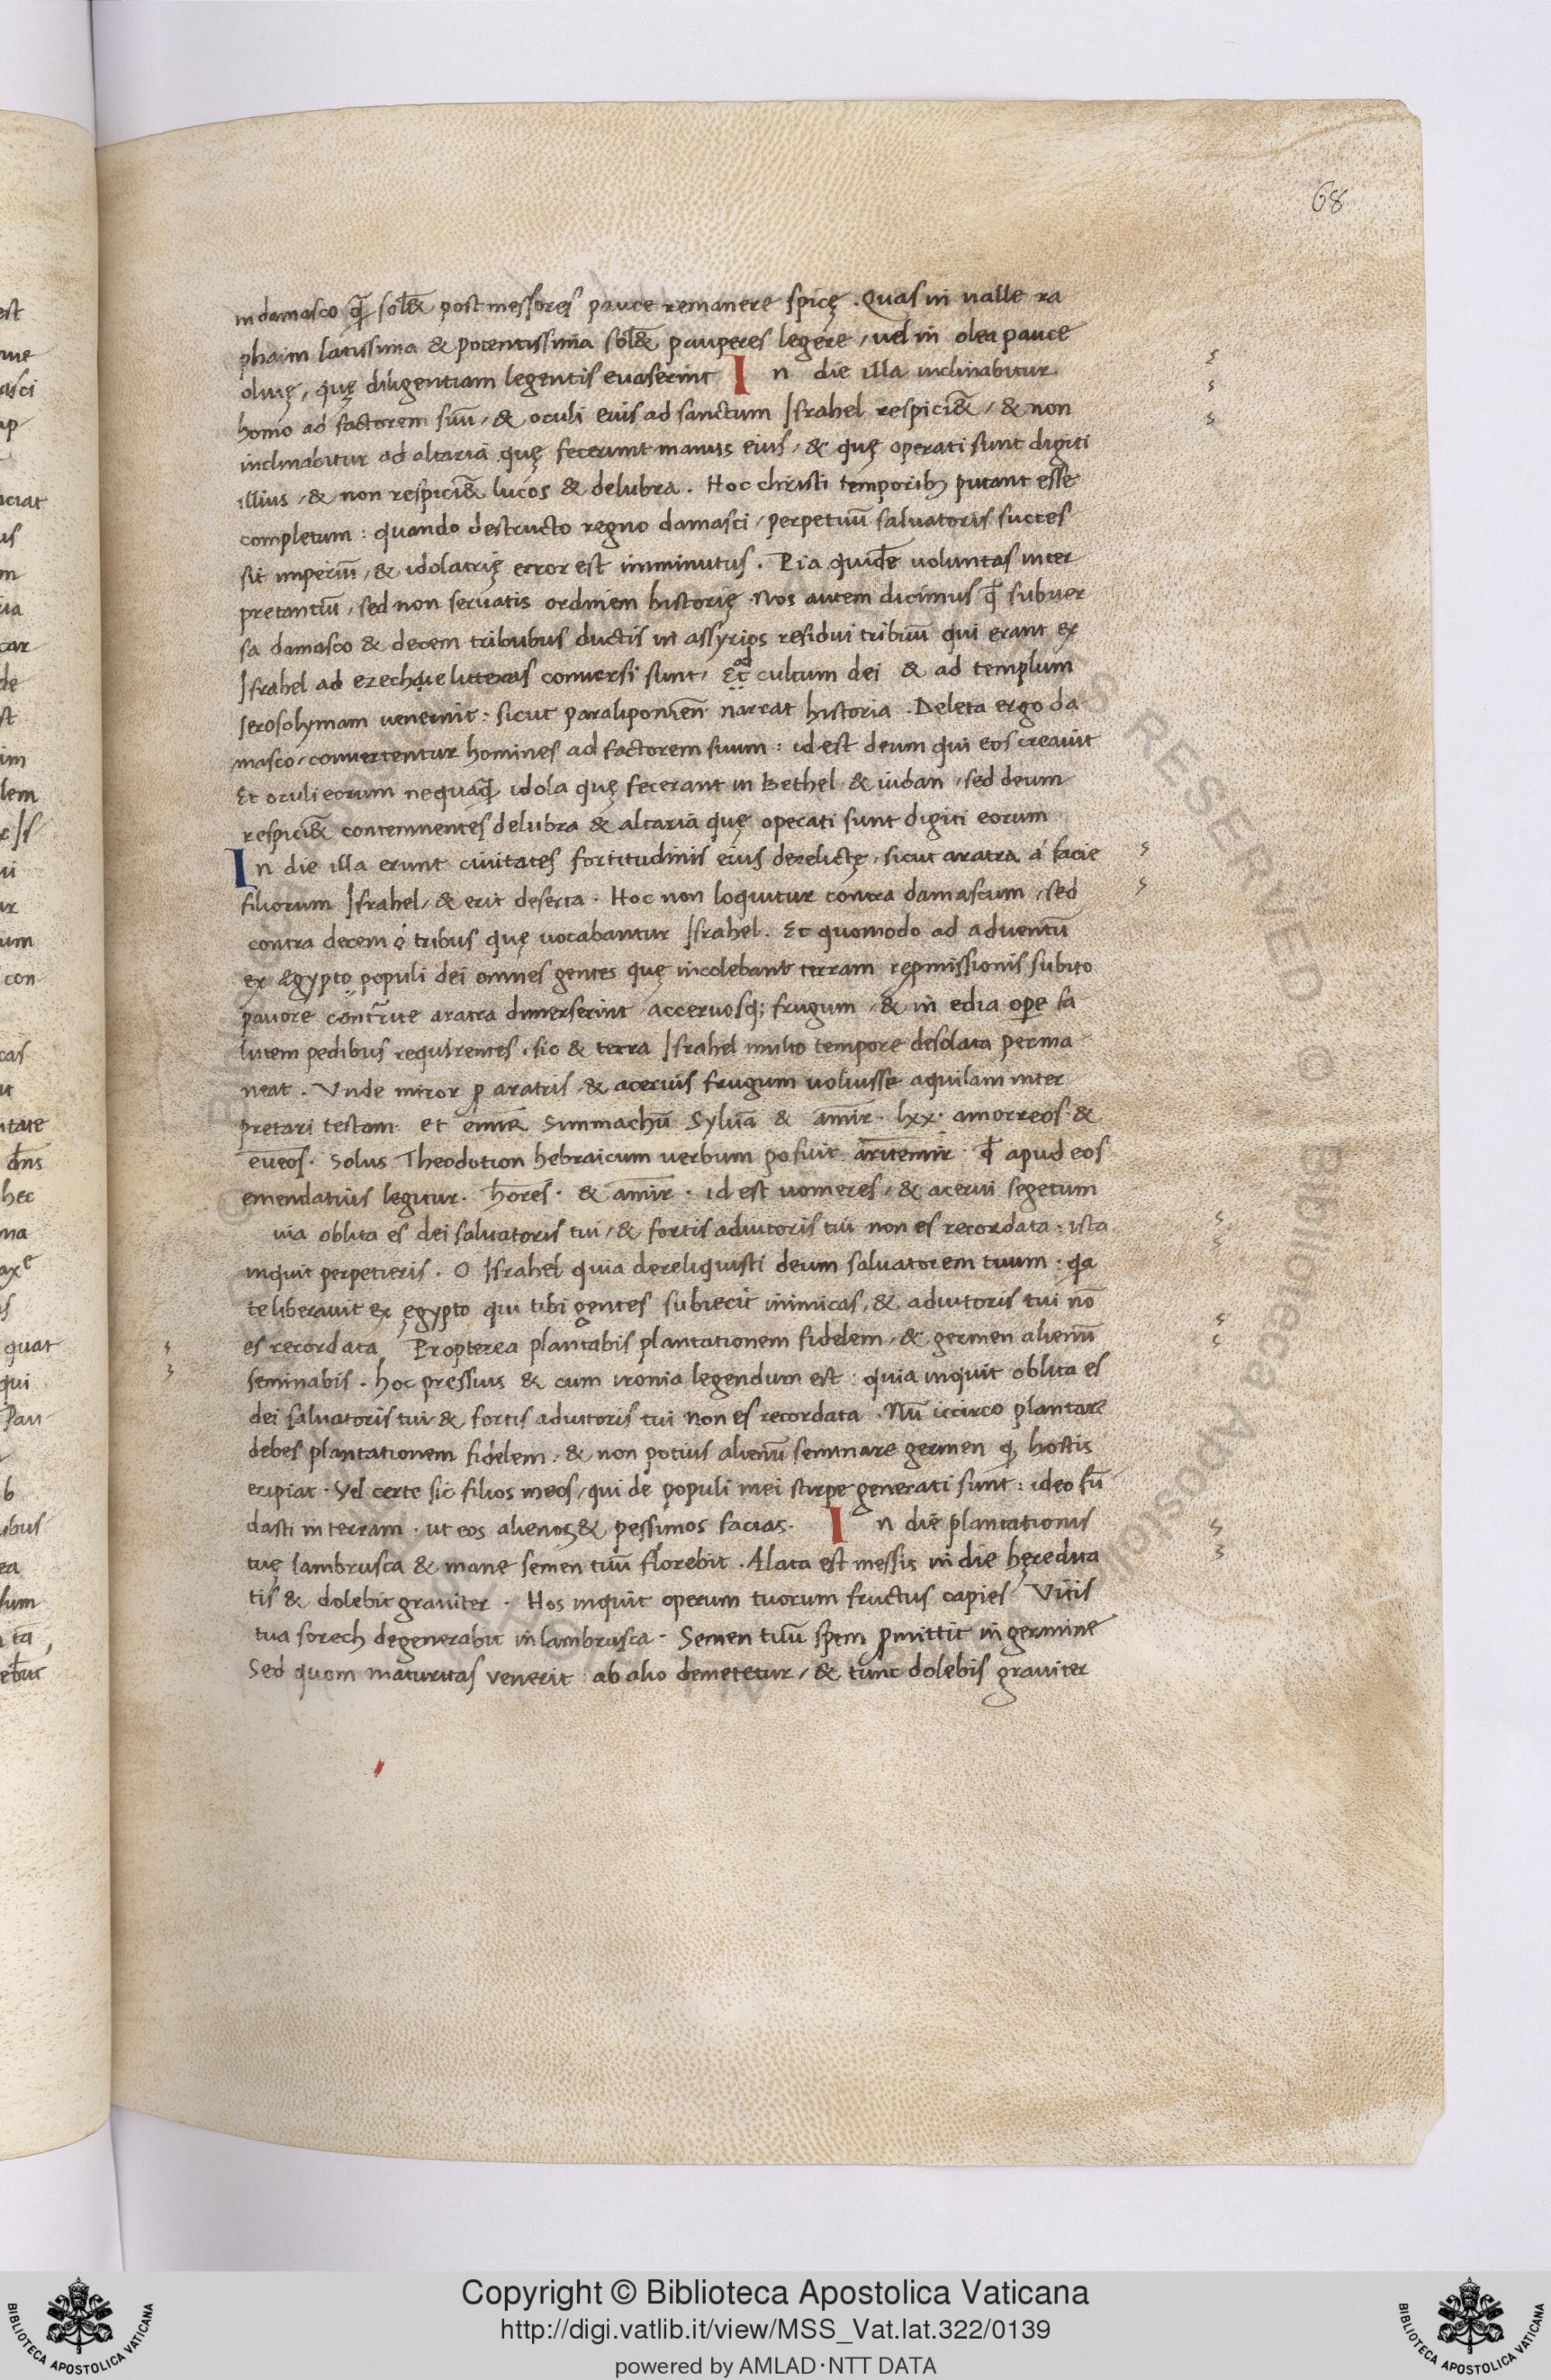 68
in damasco qͣ sol&̄ post messores pauce remanere spicę . Quas in ualle ra
phaim latissima & potentissima sol&̄ pauperes legere / uel in olea pauce
oliuę , quę diligentiam legentis euaserint In die illa inclinabitur
homo ad factorem suū / & oculi eius ad sanctum Israhel respici&̄ / & non
inclinabitur ad altaria quę fecerunt manus eius / & quę operati sunt digiti
illius / & non respici&̄ lucos & delubra . Hoc christi temporib; putant esse
completum : quando destructo regno damasci / perpetuū saluatoris succes
sit imperiū / & idolatrię error est imminutus . Pia quidē uoluntas inter
pretantiū , sed non seruatis ordinem historię . Nos autem dicimus ꝙ subuer
sa damasco & decem tribubus ductis in assyrios residui tribuū qui erant ex
Israhel ad ezechię litteras conuersi sunt / Et ad cultum dei & ad templum
Ierosolymam uenerint : sicut paralipomen̄ narrat historia . Deleta ergo da
masco / conuertentur homines ad factorem suum : id est deum qui eos creauit
Et oculi eorum nequaꝗ̄ idola quę fecerant in Bethel & in dan , sed deum
respici&̄ contemnentes delubra & altaria quę operati sunt digiti eorum
In die illa erunt ciuitates fortitudinis eius derelictę , sicut aratra a facie
filiorum Israhel / & erit deserta . Hoc non loquitur contra damascum / sed
contra decem tribus quę uocabantur Israhel . Et quomodo ad aduentū
ex ægypto populi dei omnes gentes quę incolebant terram repmissionis subito
pauore aratra dimerserint / acceruosq; frugum / & in edia ope sa
lutem pedibus requirentes , sic & terra Israhel multo tempore desolata perma
neat . Vnde miror p aratris , & aceruis frugum uoluisse aquilam inter
pretari testam et emir Simmachū Syluā & amir . lxx . amorreos &
eueos . Solus Theodotion hebraicum uerbum posuit ꝙ apud eos
emendatius legitur . hores . & amir . id est uomeres , & acerui segetum
uia oblita es dei saluatoris tui / & fortis adiutoris tui non es recordata : ista
inquit perpetieris . O Israhel quia dereliquisti deum saluatorem tuum . qa
te liberauit ex ęgypto qui tibi gentes subiecit inimicas , & adiutoris tui nō
es recordata Propterea plantabis plantationem fidelem / & germen alienū
seminabis . hoc pressius & cum ironia legendum est : quia inquit oblita es
dei saluatoris tui & fortis adiutoris tui non es recordata . Nū iccirco plantare
debes plantationem fidelem / & non potius alienū seminare germen ꝙ hostis
eripiat . Vel certe sic filios meos / qui de populi mei stirpe generati sunt : ideo fū
dasti in terram . ut eos alienos & pessimos facias . In die plantationis
tuę lambrusca & mane semen tuū florebit . Alata est messis in die hęredita
tis & dolebit grauiter . Hos inquit operum tuorum fructus capies Vitis
tua sorech degenerabit in lambrusca . Semen tuū spem pmittit in germine
Sed quom maturitas venerit : ab alio demetetur / & tunc dolebis grauiter
Copyright © Biblioteca Apostolica Vaticana
http://digi.vatlib.it/view/MSS_Vat.lat.322/0139
powered by AMLAD·NTT DATA